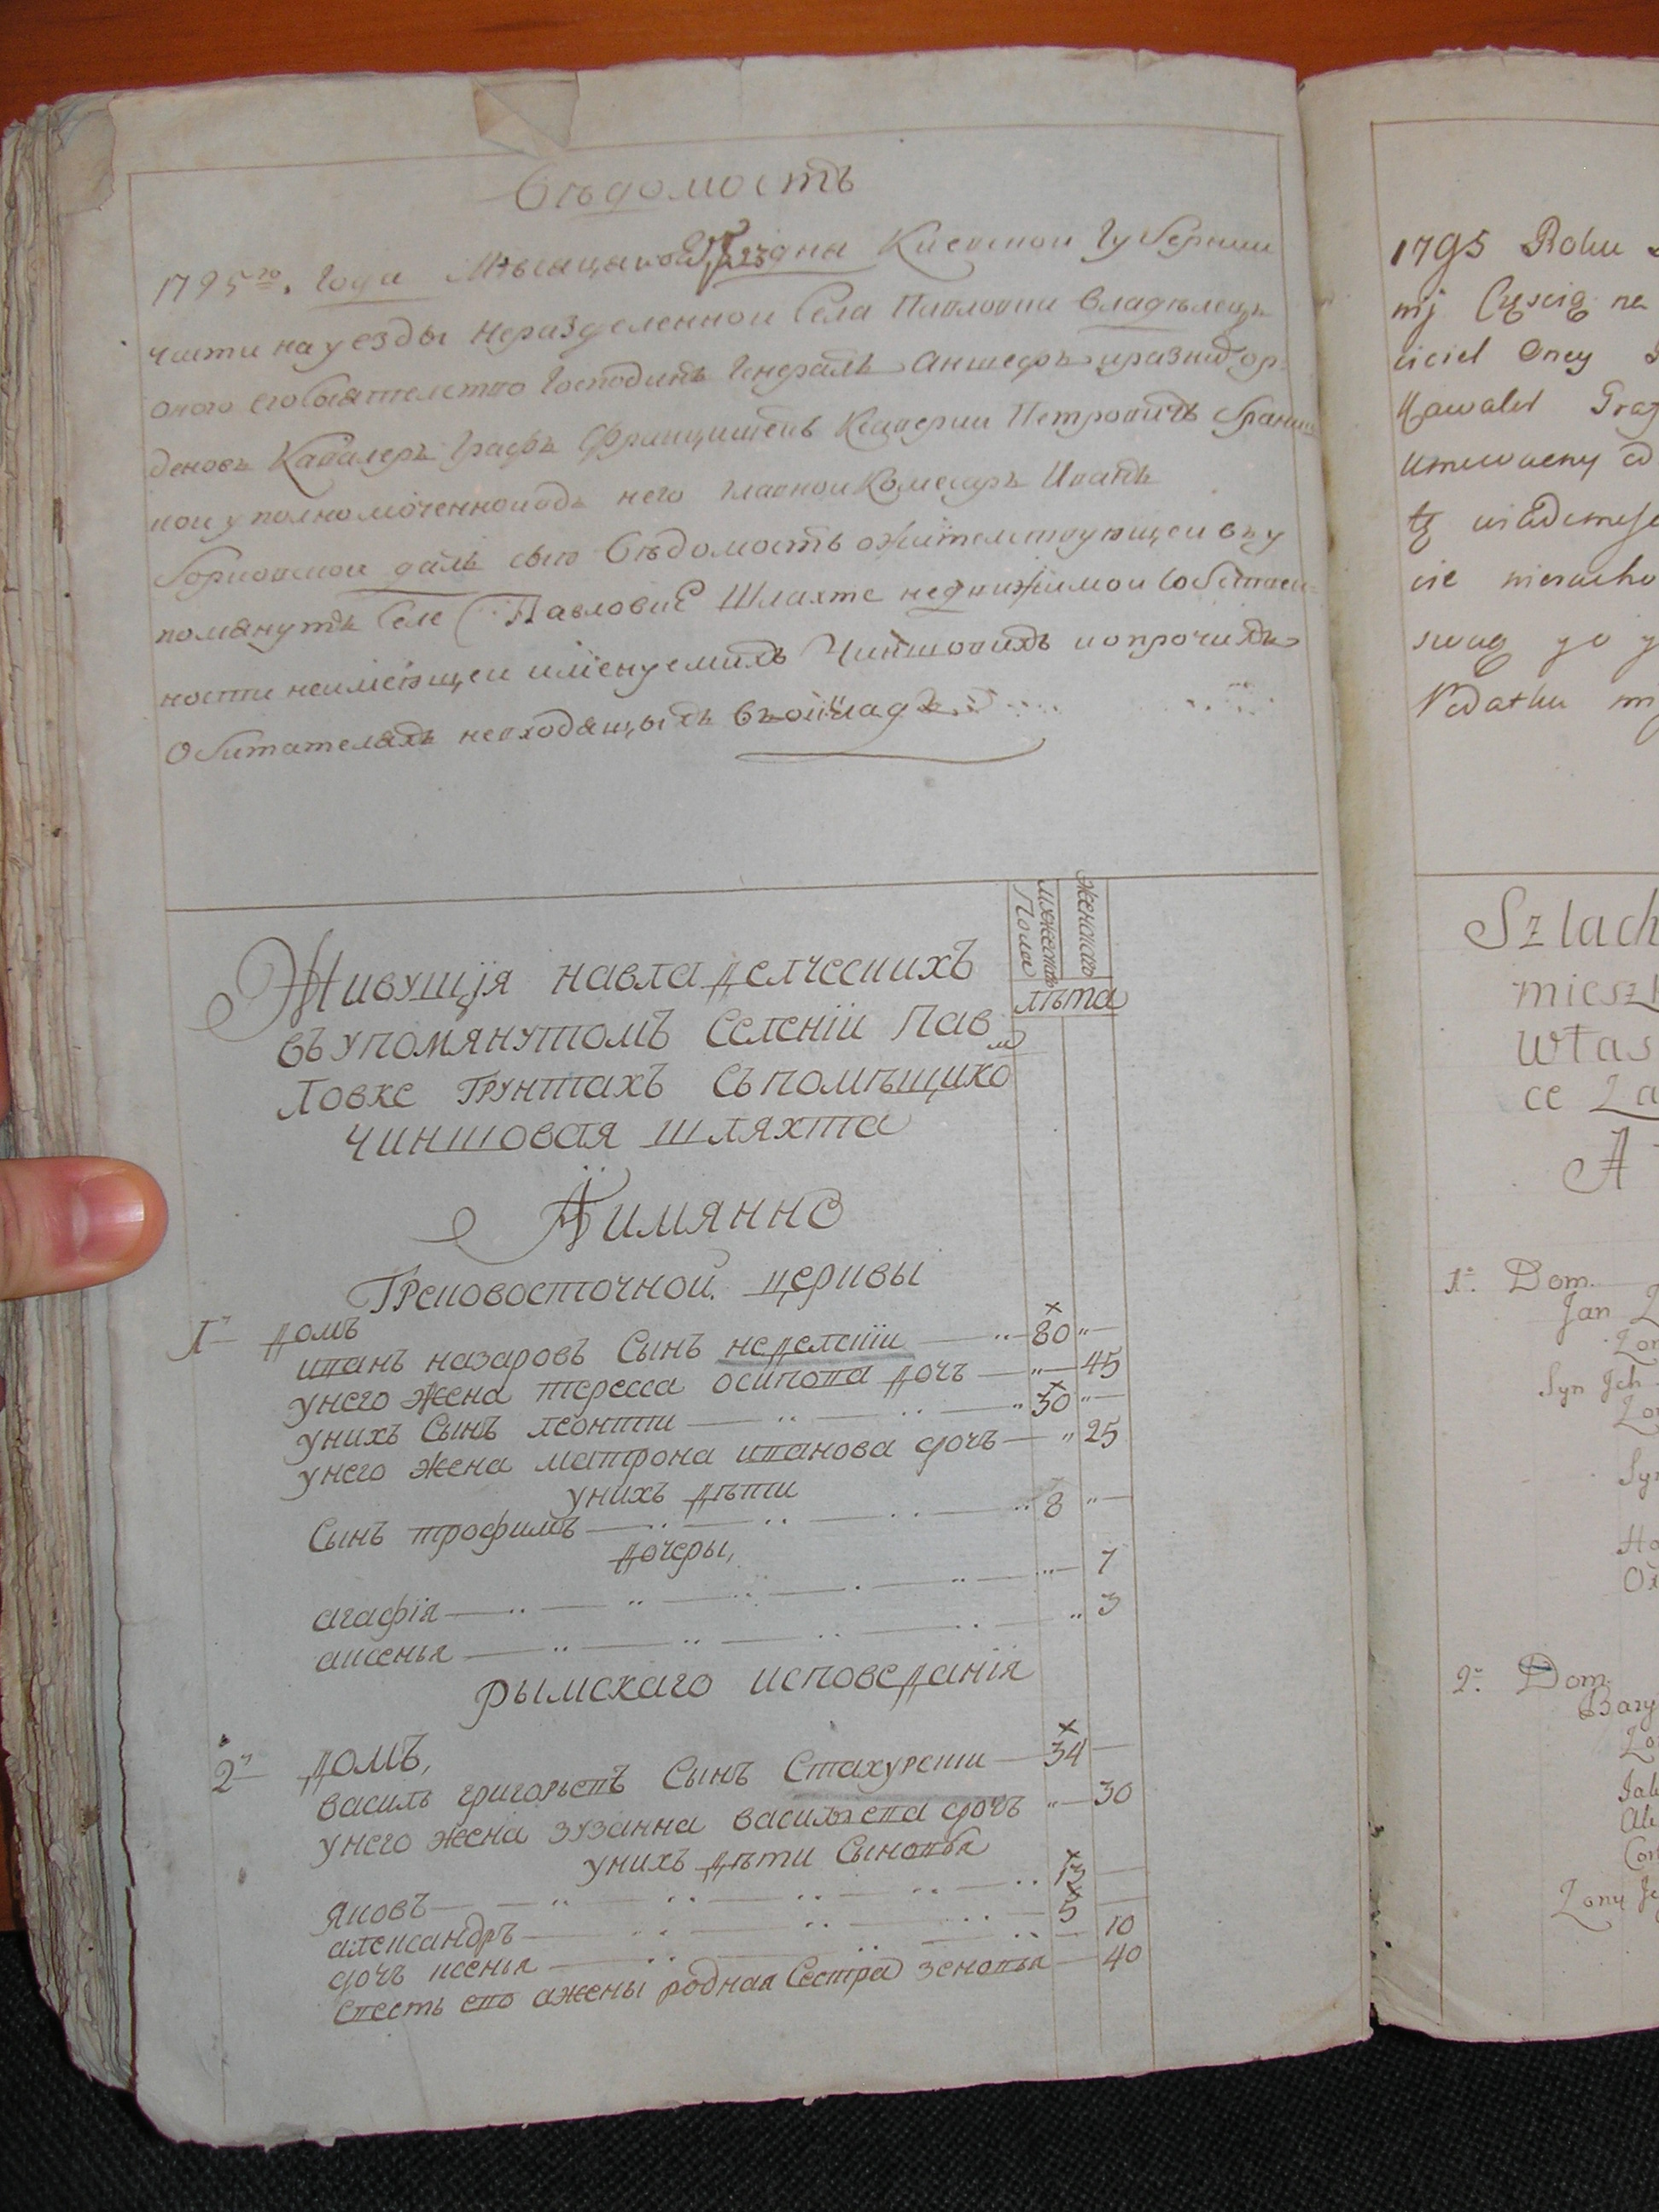 Вѣдомость
1795го. Года Мѣсяца дня Киевской Губернии
части на уезды неразделенной Села Павловки Владѣлецъ
оного его Сиятелство Господинъ Генералъ Аншефъ и разнихъ ор-
деновъ Кавалеръ Графъ Францишекъ Ксаверии Петровичъ Браниц
кои уполномоченной одъ него главнои Комесаръ Иванъ
далъ сию Вѣдомость о жителствующеи въ у
помянутъ Селе Павловкѣ Шляхте недвижимои собствен-
ности неимеющеи имѣнуемихъ Чиншовихъ и о прочихъ
Обитателяхъ невходящыхъ въ окладъ
женскаго
мужеска
Пола
лѣта
Живущія на владелческихъ
въ упомянутомъ Селеніи Пав
ловке грунтахъ съ помѣщико
м
чиншовая шляхта
А имянно
Грековосточной церквы
1й домъ
иванъ назаровъ Сынъ неделскіи 80 "
у него жена тересса осипова дочъ " 45
у нихъ Сынъ леонтіи 30 "
у него жена матрона иванова дочъ " 25
у нихъ дѣти
Сынъ трофимъ 8 "
дочеры,
агафія " 7
аксенья " 3
рымскаго исповеданія
2й домъ,
василь григорьевъ Сынъ Стахурскіи 34
у него жена зузанна васильева дочъ " 30
у нихъ дѣти Сыновья
яковъ 13
александръ 5
дочъ ксенья 10
своесть его а жены родная Сестра зеновья 40
1795 Roku
nij Częścią na
iciel Oney
Kawaler Graf
Umocowany od
tę wiadomość
cie nierucho
swag go y
Podatku
Szlach
miesz
włas
ce Za
A
1o. Dom.
Jan
Żon
Syn Jch
Żon
Syn
2o. Dom
Bazy
Żo
Jak
Ale
Cor
Żony Je